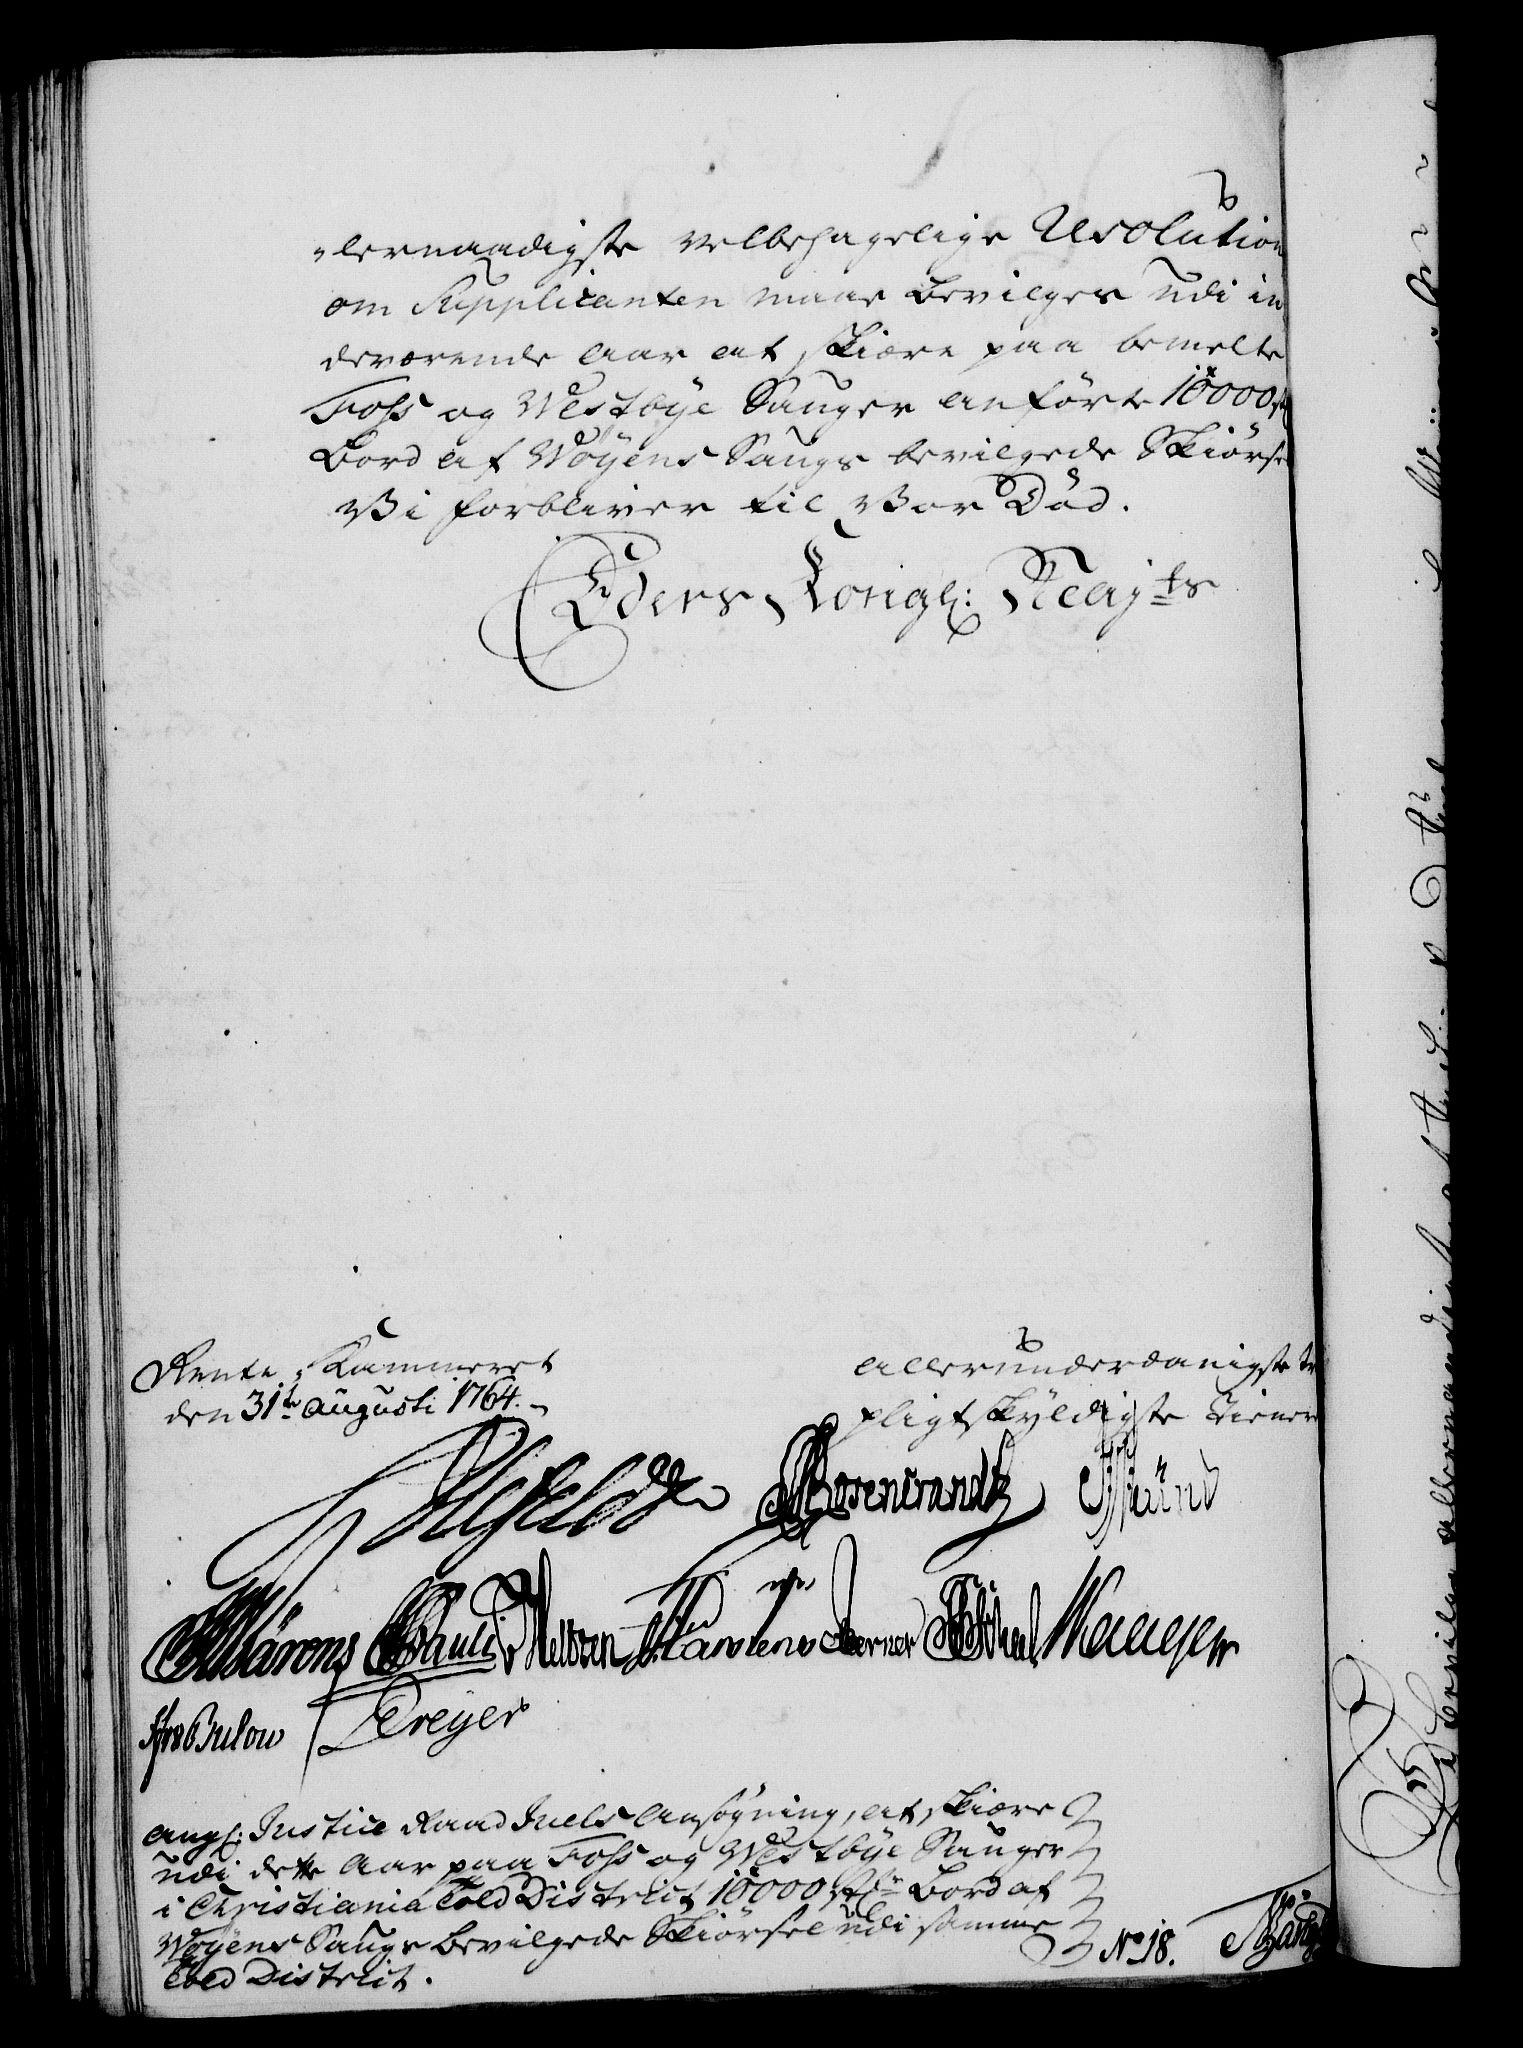 lernaadigste velbehagelige Resolution
om Supplicanten maae bevilges udi in
deværende Aar at skiære paa bemelte
Foss og Westbye Sauger anførte 10000 st
Bord af Wøyens Saugs bevilgede Skiørsel
Vi forbliver til Vor Død.
Eders Kongl: Mayts
Rente-Kammeret
den 31te Augusti 1764.
allerunderdanigste tr
pligtskyldigste Tienere
Ahlefeldt Rosencrandtz
Bärens Pauli Meltzen Karstens Berner
von Bulow Dreyer
angl: Justice Raad Juels Ansøgning, at skiære
udi dette Aar paa Foss og Westbye Sauger
i Christiania Told District 10000 st Bord af
Wøyens Saugs bevilgede Skiørsel udi samme
Told District.
No 18.